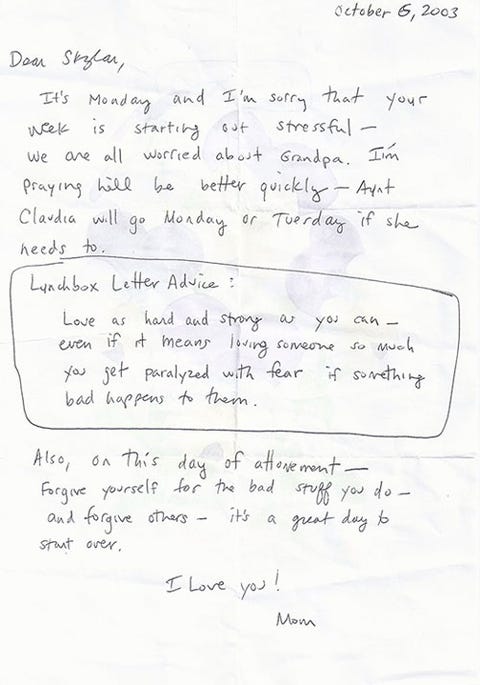 October 6, 2003
Dear Skylar,
It's Monday and I'm sorry that your
week is starting out stressful —
we are all worried about Grandpa. I'm
praying he'll be better quickly — Aunt
Claudia will go Monday or Tuesday if she
needs to.
Lunchbox Letter Advice :
Love as hard and strong as you can —
even if it means loving someone so much
you get paralyzed with fear if something
bad happens to them.
Also, on this day of attonement —
Forgive yourself for the bad stuff you do —
and forgive others — it's a great day to
start over.
I Love you!
Mom